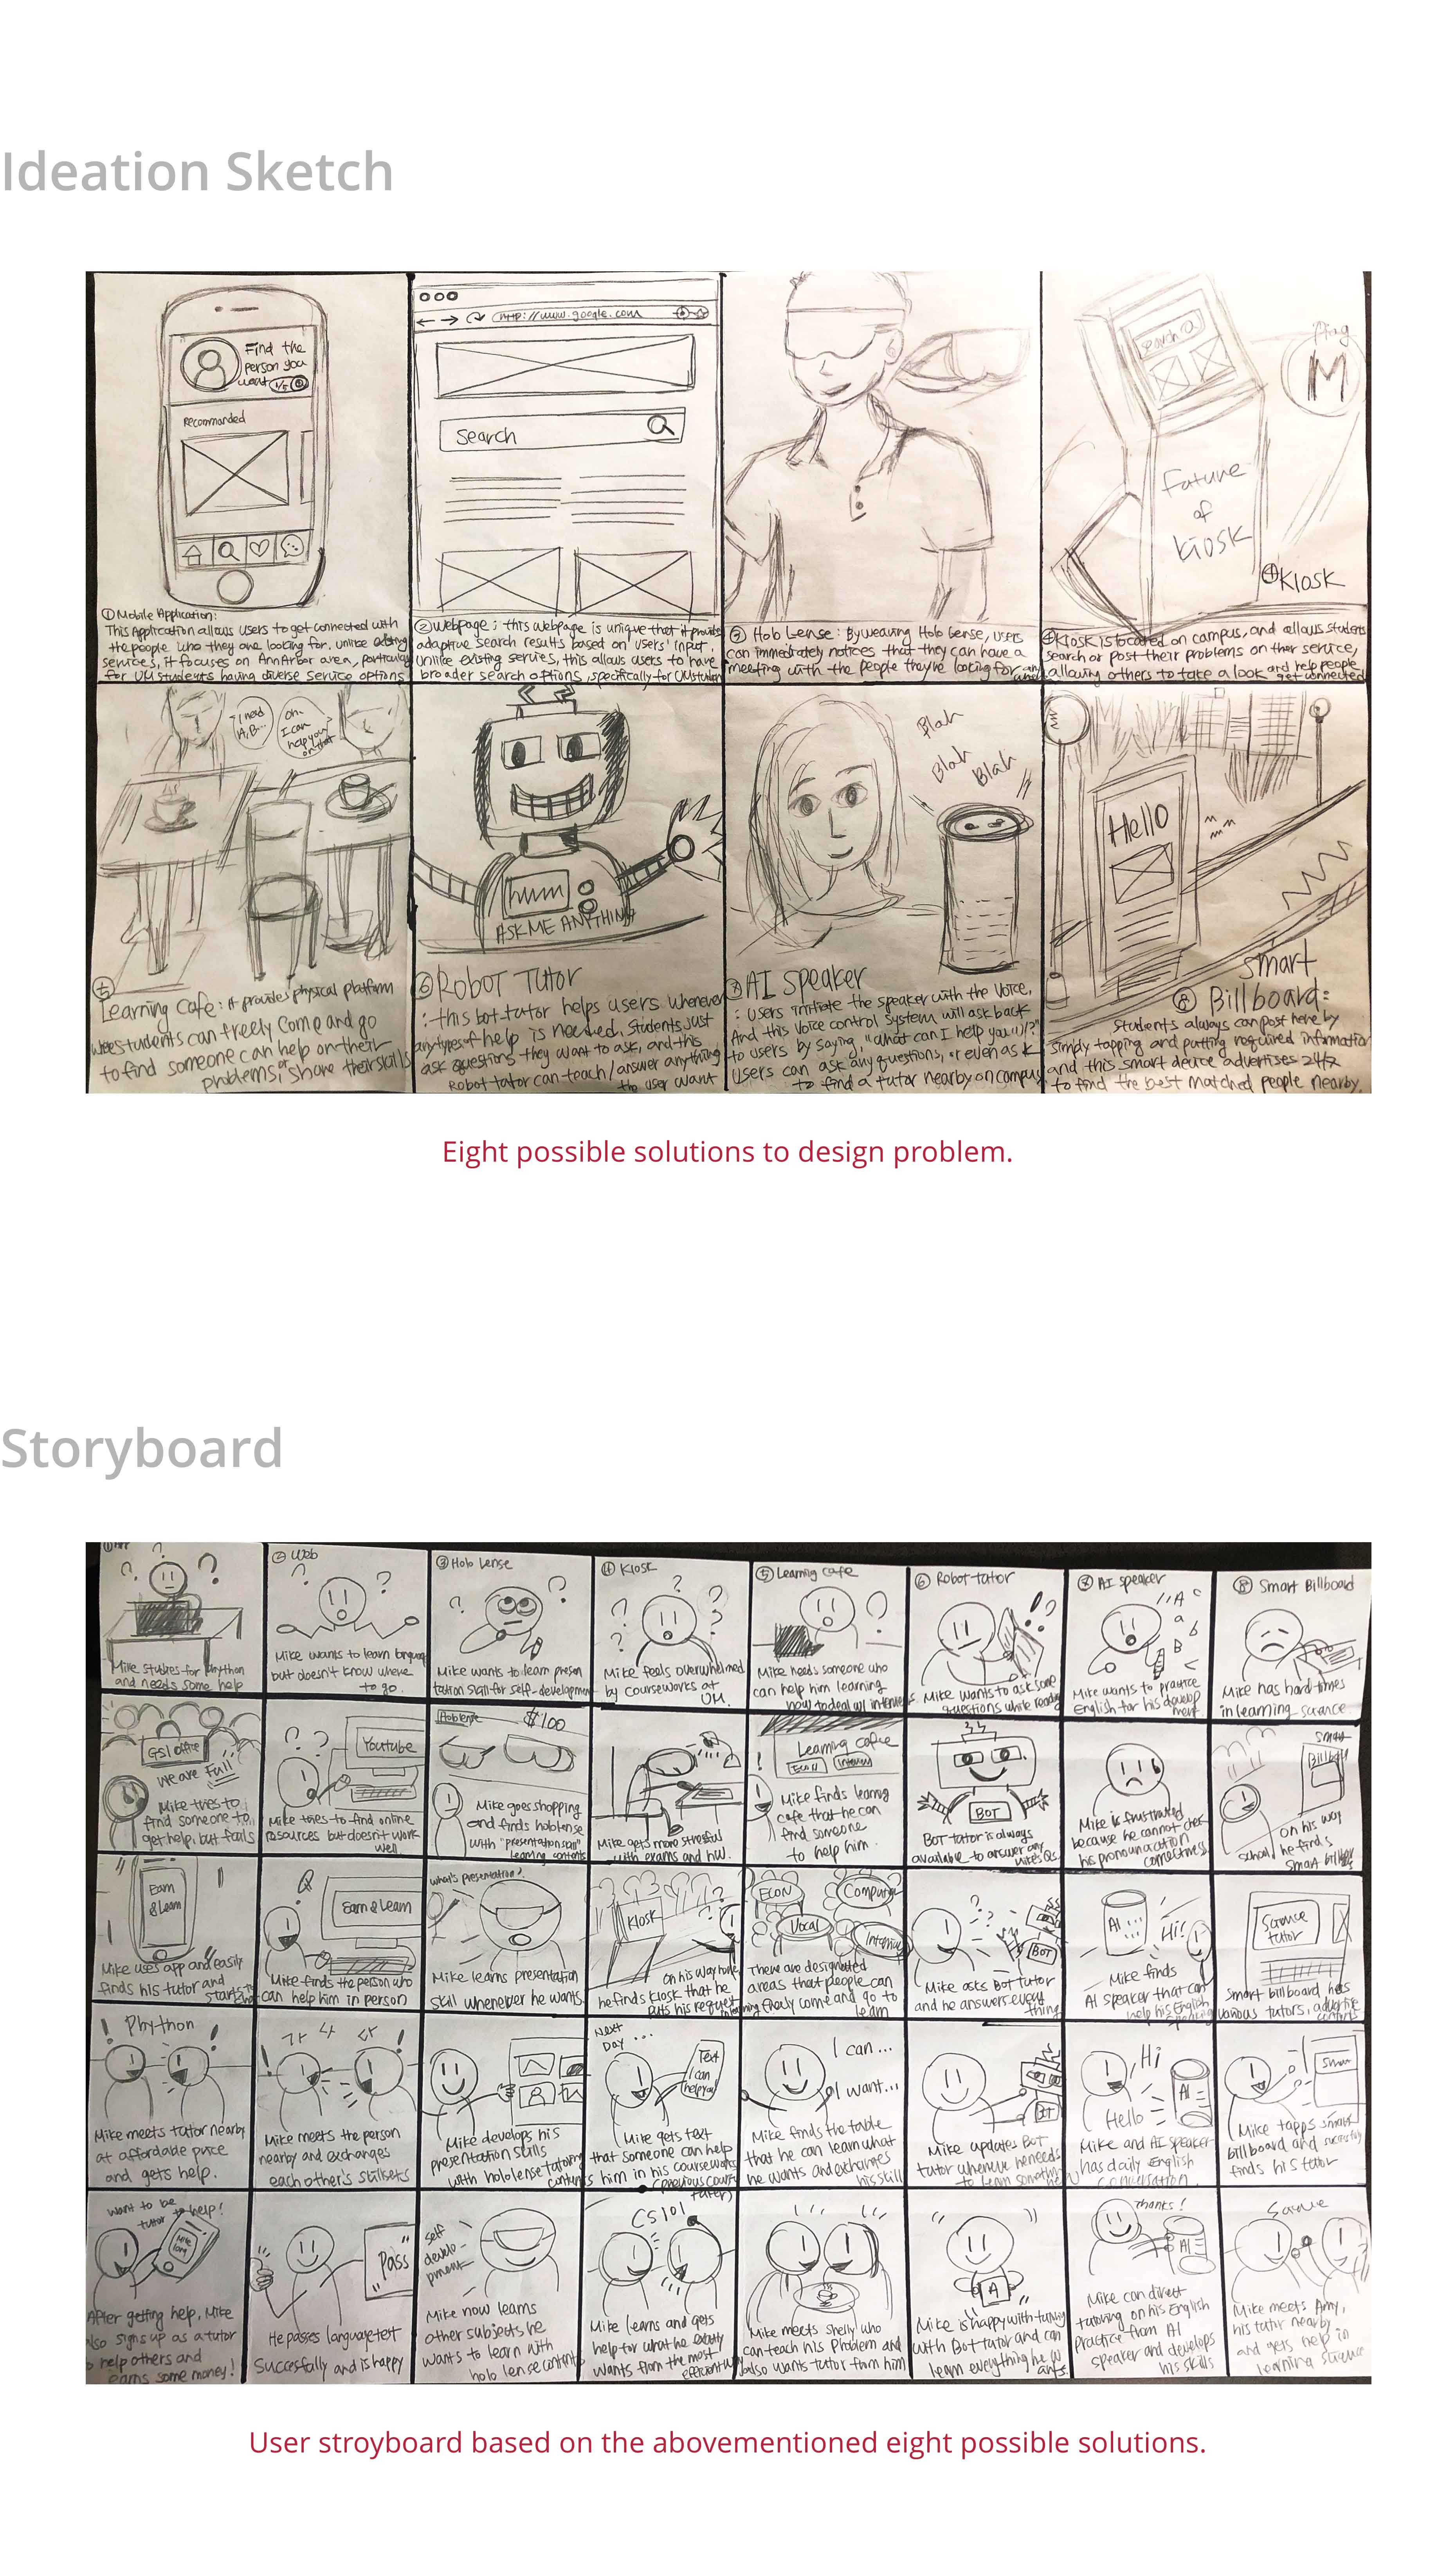 Ideation Sketch
Find the
person you
want
Recommanded
① Mobile Application:
This Application allows users to get connected with
the people who they are looking for. unlike existing
services, it focuses on Ann Arbor area, particularly
for UM students having diverse service options
http://www.google.com
Search
② Webpage; this webpage is unique that it provides
adaptive search results based on users' input.
Unlike existing servies, this allows users to have
broader search options, specifically for UM students
③ Holo Lense: By weaving Holo Lense, users
can immediately notices that they can have a
meeting with the people they're looking for
Search
M
Future
of
kiosk
④ KIOSK
④ KIOSK is located on campus, and allows students
search or post their problems on their service,
allowing others to take a look and help people
get connected
I need
A, B...
Oh..
I can
help you
on that
⑤
Learning Cafe: it provides physical platform
students can freely come and go
to find someone can help on their
problems, or share their skills
hmm
ASK ME ANYTHING
⑥ ROBOT TUTOR
: this bot-tutor helps users whenever
any types of help is needed. Students just
ask questions they want to ask, and this
Robot tutor can teach/answer anything
the user want
Blah
Blah
Blah
⑦ AI SPEAKER
: Users initiate the speaker with the voice,
And this voice control system will ask back
to users by saying, "what can I help you!!/?"
Users can ask any questions, or even ask
to find a tutor nearby on campus
Hello
Smart
⑧ Billboard:
Students always can post here by
simply tapping and putting required information
and this smart device advertises 24/7
to find the best matched people nearby.
Eight possible solutions to design problem.
Storyboard
Mike studies for Phython
and needs some help
② Web
Mike wants to learn
but doesn't know where
to go.
③ Holo Lense
Mike wants to learn presen
tation skill for self-development
④ KIOSK
Mike feels overwhelmed
by courseworks at
UM.
⑤ Learning cafe
Mike needs someone who
can help him learning
how to deal w/ interviews
⑥ Robot tutor
Mike wants to ask some
questions while reading
⑦ AI speaker
Mike wants to practice
English for his develop
ment
⑧ Smart Billboard
Mike has hard times
in learning science
GSI office
We are Full
Mike tries to
find someone to
get help, but fails
Youtube
Mike tries to find online
resources but doesn't work
well
Hololense
$100
Mike goes shopping
and finds hololense
with "presentation skill"
learning contents
Mike gets more stressful
with exams and HW.
Learning coffee
Econ
Interview
Mike finds learning
cafe that he can
find someone
to help him.
BOT
BOT tutor is always
available to answer any
Mike's Qs.
Mike is frustrated
because he cannot check
his pronounciation
correctness
Smart
Billboard
on his way
school, he finds
smart billboard
Earn
& Learn
Mike uses app and easily
finds his tutor and
Earn & Learn
Mike finds the person who
can help him in person
what's presentation?
Mike learns presentation
skill whenever he wants
KIOSK
On his way home
he finds KIOSK that he
puts his request
ECON
Computer
Vocal
Interview
There are designated
areas that people can
freely come and go to
learn
BOT
Mike asks Bot tutor
and he answers every
thing
AI
Hi!
Mike finds
AI speaker that can
help his English
speaking
Science
tutor
Smart billboard has
various tutors, advertise
contents
Phython
Mike meets tutor nearby
at affordable price
and gets help.
가 나 다
Mike meets the person
nearby and exchanges
each other's skillsets
Mike develops his
presentation skills
with hololense tutoring
contents
Next
Day ...
Text
I can
help you!
Mike gets text
that someone can help
him in his courseworks
I can ...
I want...
Mike finds the table
that he can learn what
he wants and exchanges
his skill
BOT
Mike updates BOT
tutor whenever he needs
to learn something
Hi
Hello
AI
Mike and AI speaker
has daily English
conversation.
Smart
Mike tapps smart
billboard and successfully
finds his tutor
want to be
tutor to help!
After getting help, Mike
also signs up as a tutor
to help others and
earns some money!
Pass
He passes language test
Succesfully and is happy
self
develo-
pment
Mike now learns
other subjects he
wants to learn with
holo lense contents
CS101
Mike learns and gets
help for what he exactly
wants from the most
efficient way
Mike meets Shelly who
can teach his problem and
also wants tutor from him
A
Mike is happy with tutoring
with Bot tutor and can
learn everything he w
ants.
Thanks!
AI
Mike can direct
tutoring on his English
practice from AI
speaker and develops
his skills
Mike meets Amy,
his tutor nearby
and gets help in
learning science
User stroyboard based on the abovementioned eight possible solutions.